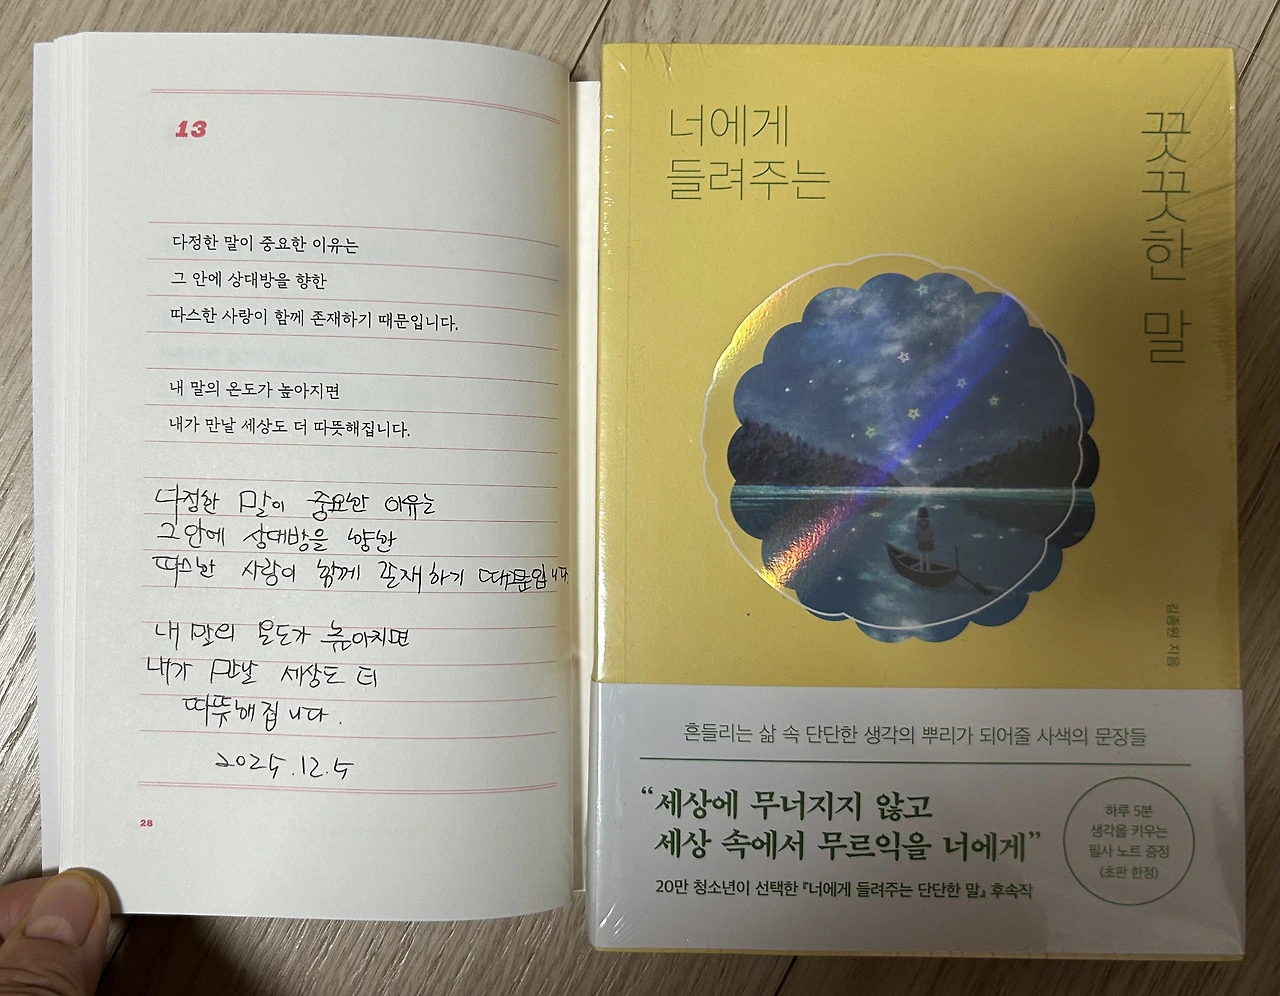 13
다정한 말이 중요한 이유는
그 안에 상대방을 향한
따스한 사랑이 함께 존재하기 때문입니다.
내 말의 온도가 높아지면
내가 만날 세상도 더 따뜻해집니다.
다정한 말이 중요한 이유는
그 안에 상대방을 향한
따스한 사랑이 함께 존재하기 때문입니다.
내 말의 온도가 높아지면
내가 만날 세상도 더
따뜻해집니다.
2025.12.5
28
너에게
들려주는
꿋꿋한 말
김종원 지음
흔들리는 삶 속 단단한 생각의 뿌리가 되어줄 사색의 문장들
“세상에 무너지지 않고
세상 속에서 무르익을 너에게”
20만 청소년이 선택한 『너에게 들려주는 단단한 말』 후속작
하루 5분
생각을 키우는
필사 노트 증정
(초판 한정)